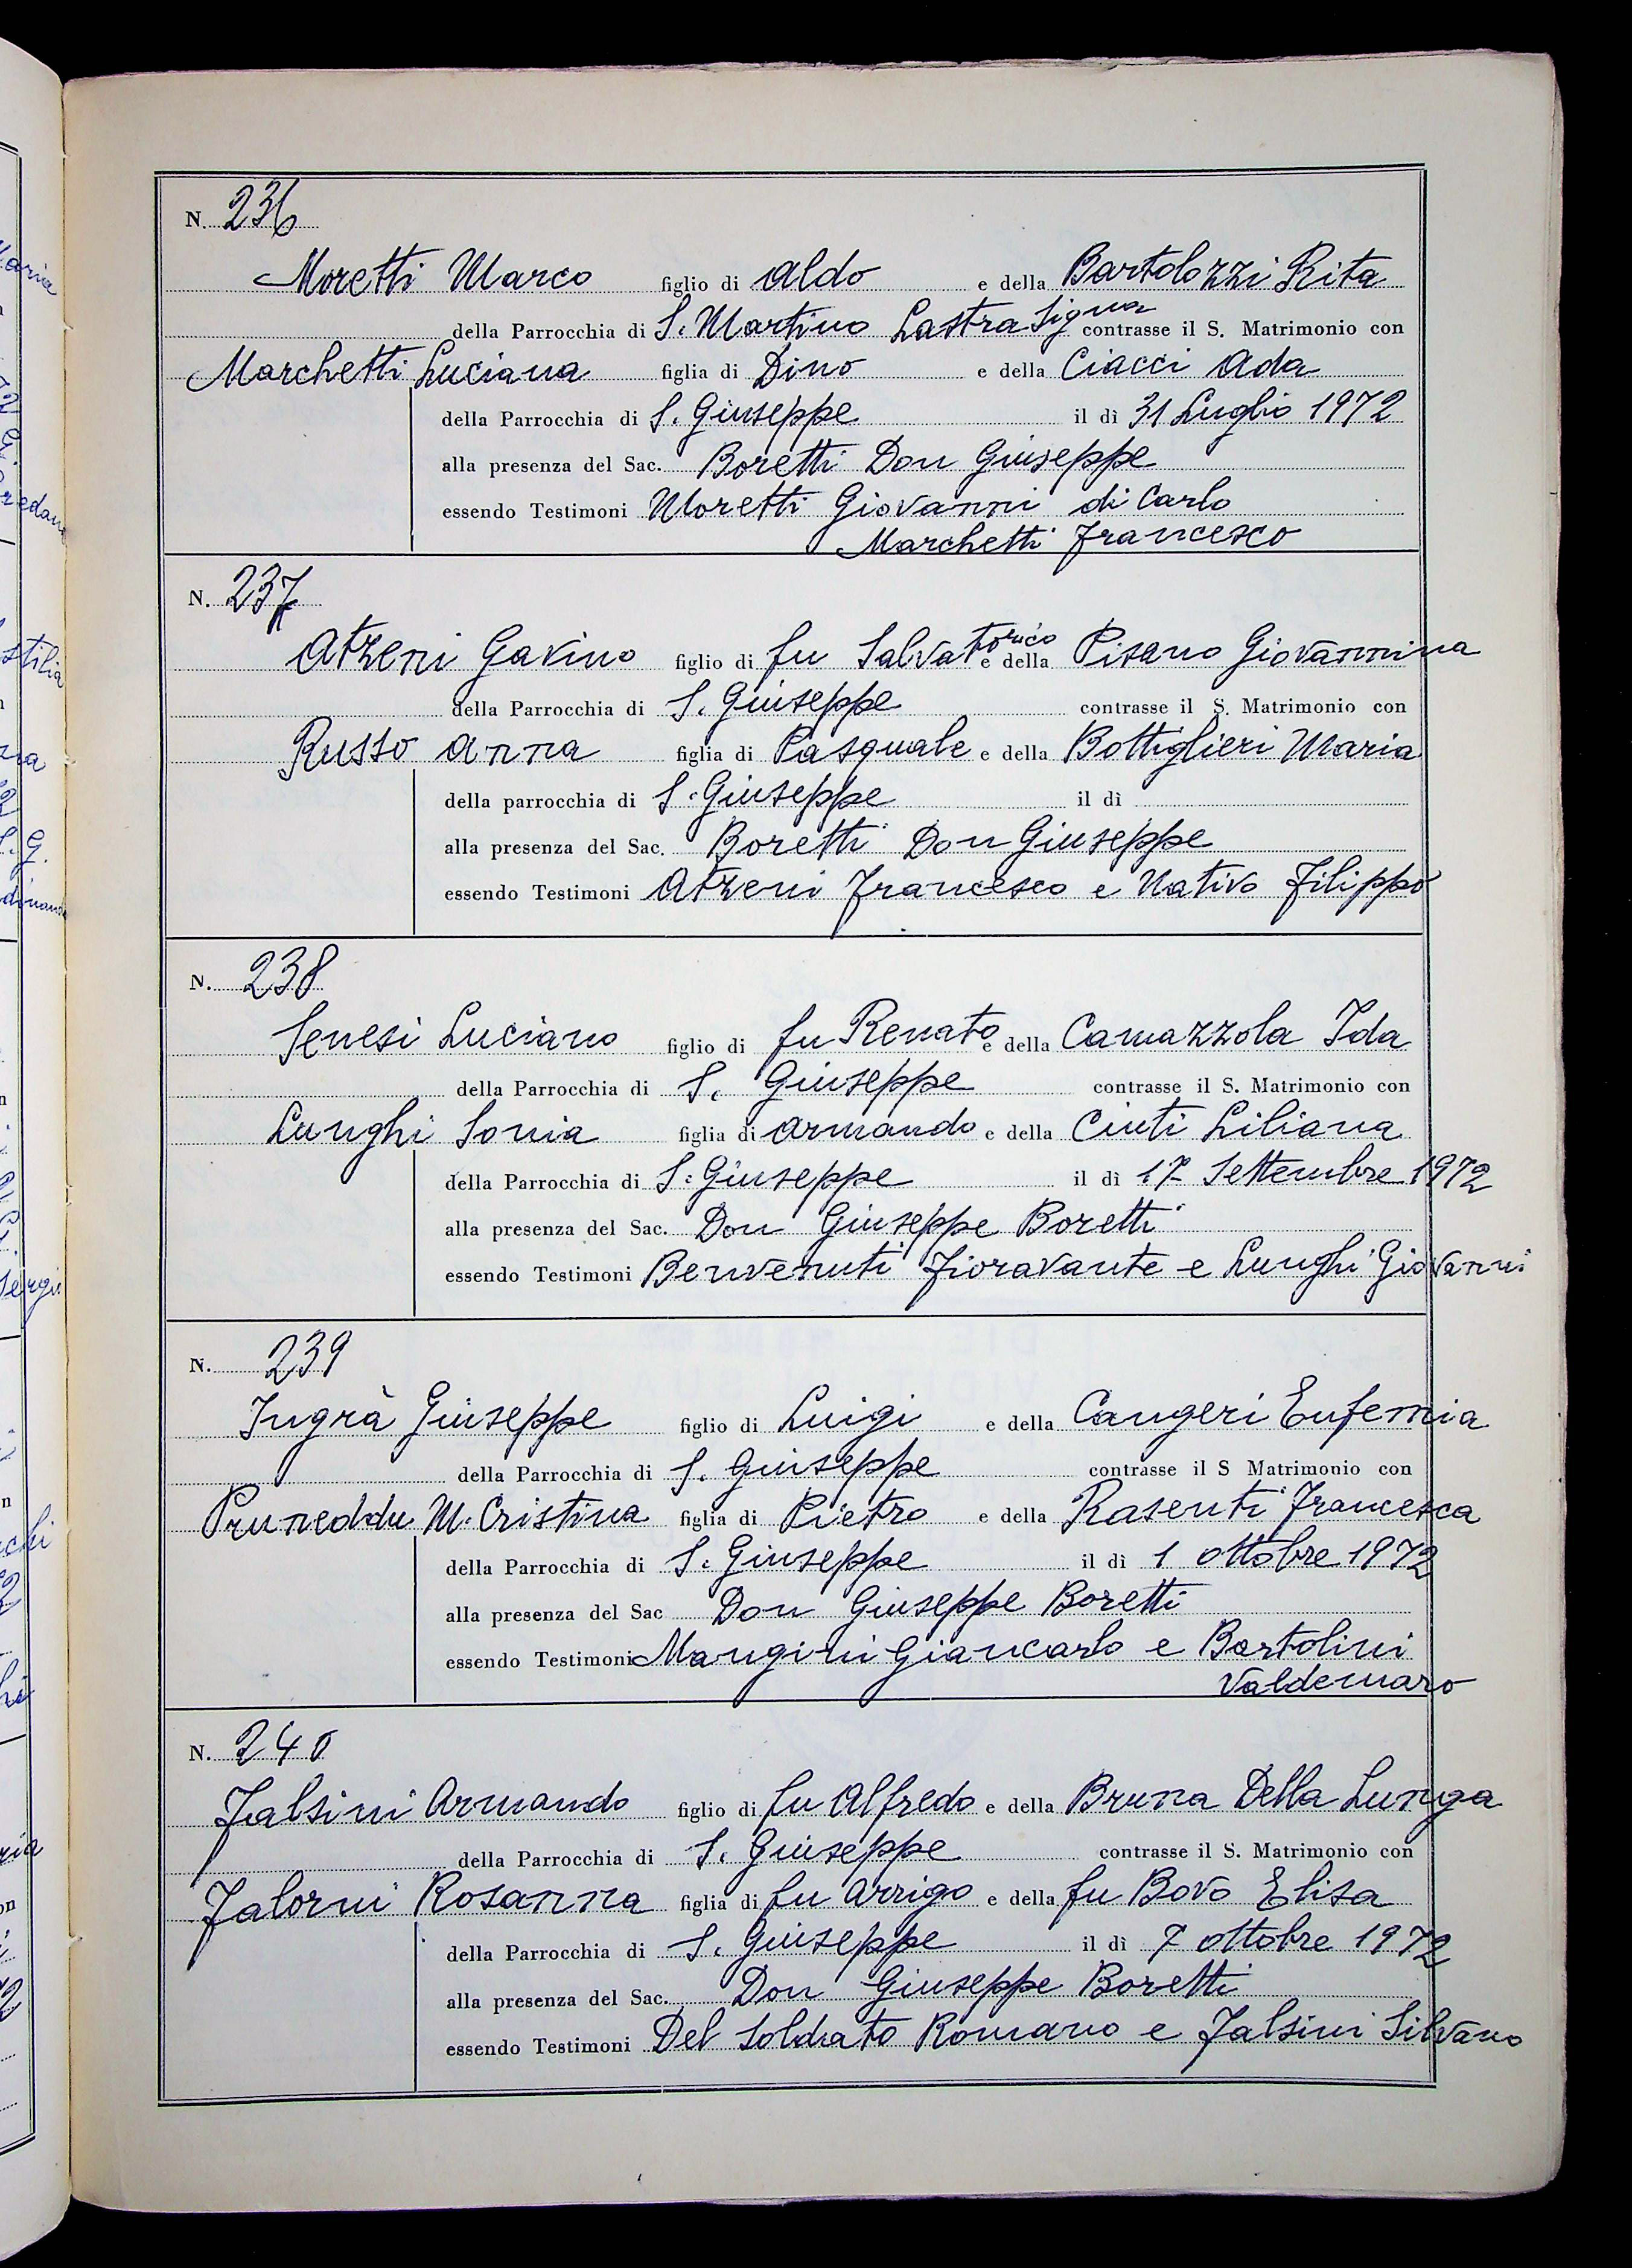 N. 236
Moretti Marco figlio di Aldo e della Bartolozzi Rita
della Parrocchia di S. Martino Lastra Signa contrasse il S. Matrimonio con
Marchetti Luciana figlia di Dino e della Ciacci Ada
della Parrocchia di S. Giuseppe il dì 31 Luglio 1972
alla presenza del Sac. Boretti Don Giuseppe
essendo Testimoni Moretti Giovanni di Carlo
Marchetti Francesco
N. 237
Atzeni Gavino figlio di fu Salvatorico e della Pisano Giovannina
della Parrocchia di S. Giuseppe contrasse il S. Matrimonio con
Russo Anna figlia di Pasquale e della Bottiglieri Maria
della parrocchia di S. Giuseppe il dì
alla presenza del Sac. Boretti Don Giuseppe
essendo Testimoni Atzeni Francesco e Nativo Filippo
N. 238
Senesi Luciano figlio di fu Renato e della Camazzola Ida
della Parrocchia di S. Giuseppe contrasse il S. Matrimonio con
Lunghi Sonia figlia di Armando e della Ciuti Liliana
della Parrocchia di S. Giuseppe il dì 17 Settembre 1972
alla presenza del Sac. Don Giuseppe Boretti
essendo Testimoni Benvenuti Fioravante e Lunghi Giovanni
N. 239
Ingrà Giuseppe figlio di Luigi e della Cangeri Eufemia
della Parrocchia di S. Giuseppe contrasse il S Matrimonio con
Pruneddu M. Cristina figlia di Pietro e della Rasenti Francesca
della Parrocchia di S. Giuseppe il dì 1 ottobre 1972
alla presenza del Sac Don Giuseppe Boretti
essendo Testimoni Mangini Giancarlo e Bartolini
Valdemaro
N. 240
Falsini Armando figlio di fu Alfredo e della Bruna Della Lunga
della Parrocchia di S. Giuseppe contrasse il S. Matrimonio con
Falorni Rosanna figlia di fu Arrigo e della fu Bovo Elisa
della Parrocchia di S. Giuseppe il dì 7 ottobre 1972
alla presenza del Sac. Don Giuseppe Boretti
essendo Testimoni Del Soldato Romano e Falsini Silvano